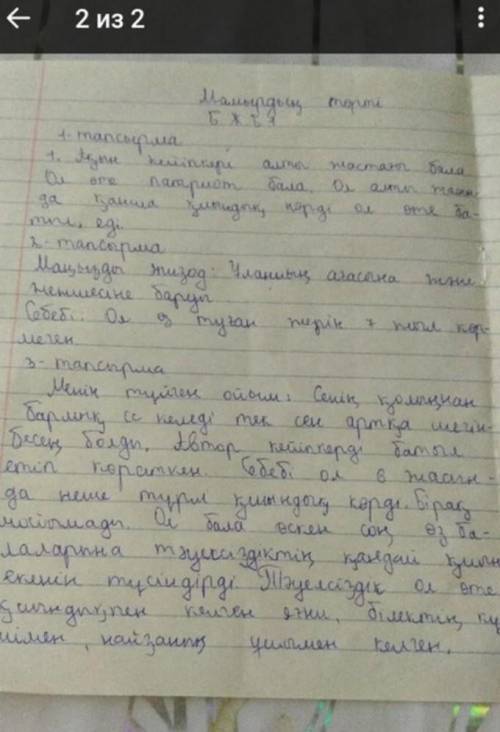 2 из 2
Мамырдың төрті
БЖБ 1
1-тапсырма
1. Ақын кейіпкері алты жастағы бала
Ол өте патриот бала. Ол алты жасын-
да қанша қиындық көрді ол өте ба-
тыл еді.
2-тапсырма
Маңызды эпизод: Ұланның ағасына және
жеңгесіне баруы
Себебі: Ол өз туған жерін 7 жыл көр-
меген
3-тапсырма
Менің түйген ойым: Сенің қолыңнан
барлық іс келеді тек сен артқа шегін-
бесең болды. Автор кейіпкерді батыл
етіп көрсеткен. Себебі ол 6 жасын-
да неше түрлі қиындық көрді. Бірақ
мойымады. Ол бала өскен соң өз ба-
лаларына тәуелсіздіктің қандай қиын
екенін түсіндірді. Тәуелсіздік ол өте
қиындықпен келген яғни, білектің кү
шімен, найзаның ұшымен келген.